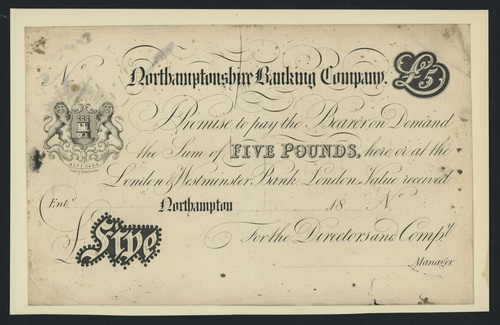 No
Northamptonshire Banking Company.
£5
I Promise to pay the Bearer on Demand
the Sum of FIVE POUNDS, here, or at the
London & Westminster Bank London. Value received
Entd
Northampton 18 No
£ Five
For the Directors and Compy
Manager